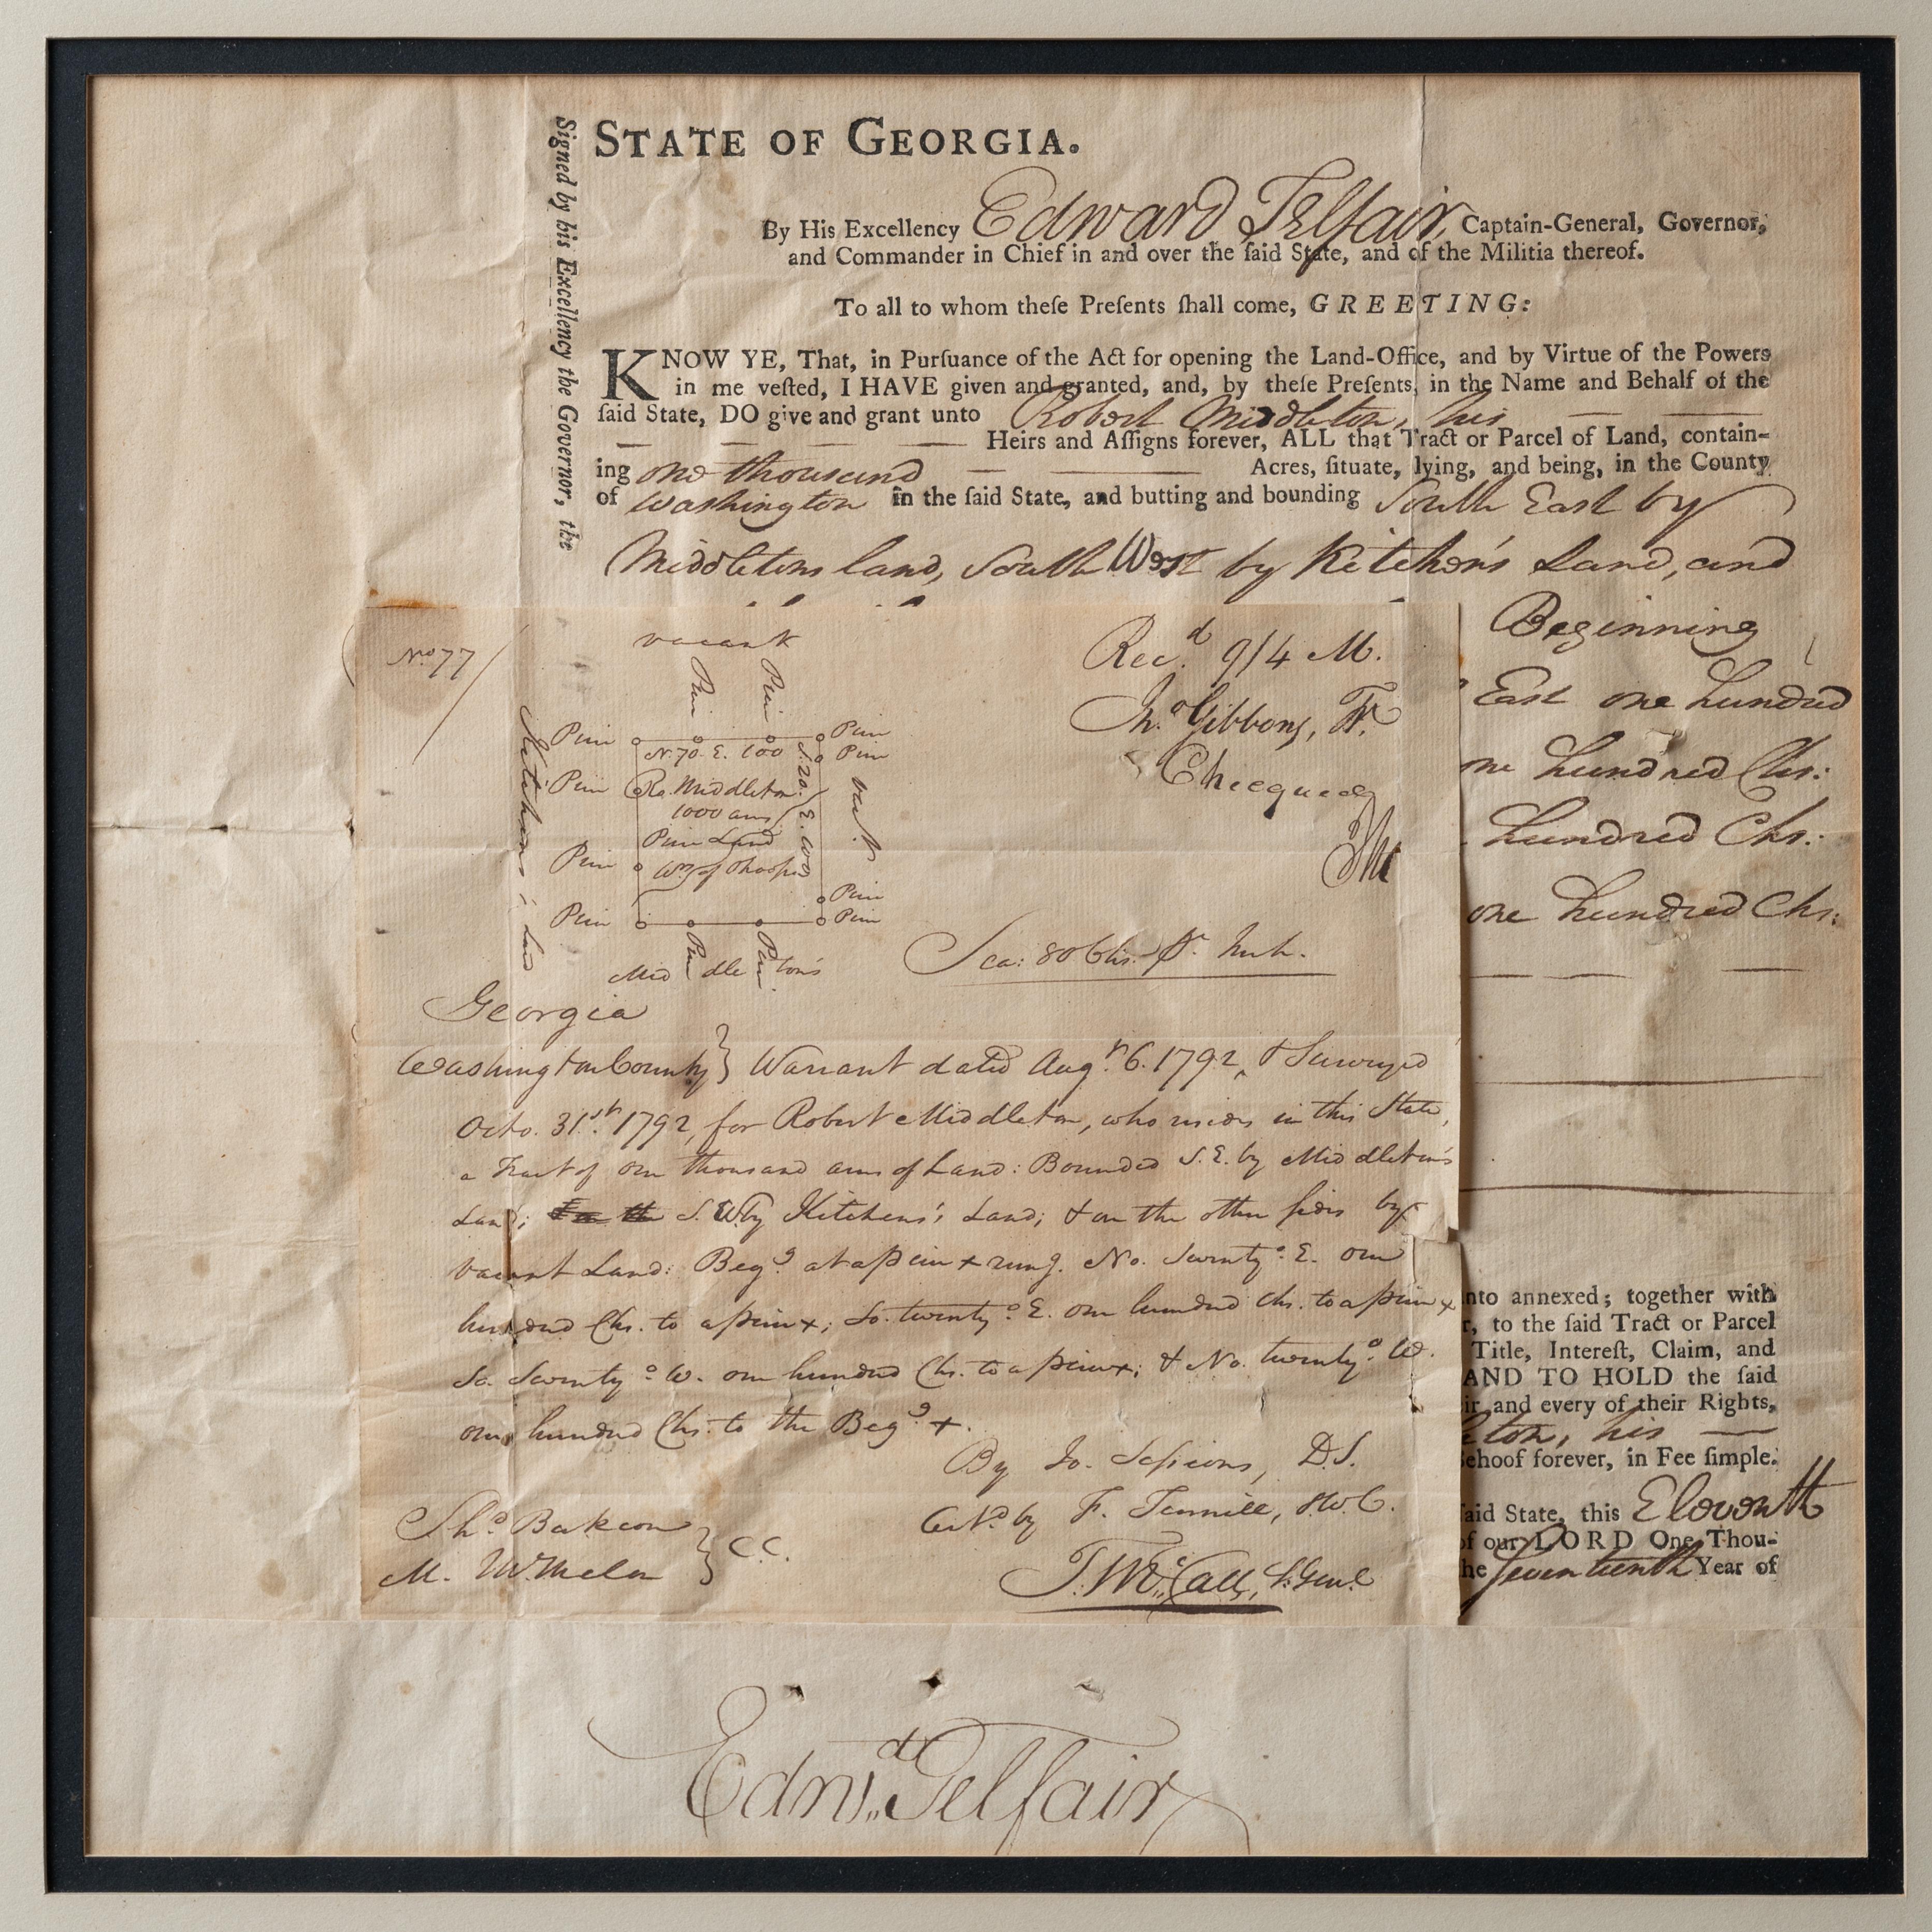 STATE OF GEORGIA.
Signed by his Excellency the Governor, the
By His Excellency Edward Telfair, Captain-General, Governor,
and Commander in Chief in and over the ſaid State, and of the Militia thereof.
To all to whom theſe Preſents ſhall come, GREETING:
KNOW YE, That, in Purſuance of the Act for opening the Land-Office, and by Virtue of the Powers
in me veſted, I HAVE given and granted, and, by theſe Preſents, in the Name and Behalf of the
ſaid State, DO give and grant unto Robert Middleton, his
Heirs and Aſſigns forever, ALL that Tract or Parcel of Land, contain-
ing one thousand Acres, ſituate, lying, and being, in the County
of Washington in the ſaid State, and butting and bounding South East by
Middletons land, South West by Kitchen's Land, and
Beginning
East one hundred
one hundred Chs:
hundred Chs:
one hundred Chs:
nto annexed; together with
r, to the ſaid Tract or Parcel
Title, Intereſt, Claim, and
AND TO HOLD the ſaid
ir and every of their Rights,
eton, his
ehoof forever, in Fee ſimple.
ſaid State, this Eleventh
of our LORD One Thou-
he Seventeenth Year of
No 77
vacant
Pine Pine
Pine Pine
N. 70. E. 100
Pine Pine
S. 20. E. 100
Ro. Middleton
1000 acres
Pine Land
Pine
Kitchens's Land
vact
Pine
Pine Pine
Pine Pine
Middleton's
Recd. 9/4 M.
Jno. Gibbons, Tr.
Sca: 80 Chs. Pr. Inch.
Georgia
Washington County } Warrant dated Augt. 6. 1792, & Surveyed
Octo. 31st. 1792, for Robert Middleton, who resides in this State,
a Tract of one thousand acres of Land: Bounded S.E. by Middleton's
Land; S. W by Kitchens's Land; & on the other sides by
vacant Land: Beg.g at a pine x rung. No. Seventy o. E. one
hundred Chs. to a pine x; So. twenty o. E. one hundred Chs. to a pine x
So. Seventy o W. one hundred Chs. to a pine x; & No. twenty o. W.
one hundred Chs. to the Beg.g x.
By Jo. D.S.
F. Tennille, S.W.C.
Tho. } C.C.
M.
T. McCall, S. Genl.
Edwd. Telfair